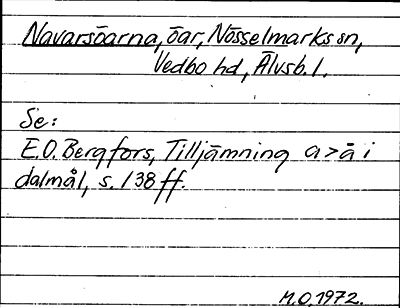 Navarsöarna, öar, Nösselmarks sn,
Vedbo hd, Älvsb. l.
Se:
E.O. Bergfors, Tilljämning a>å i
dalmål, s. 138 ff.
M.O. 1972.